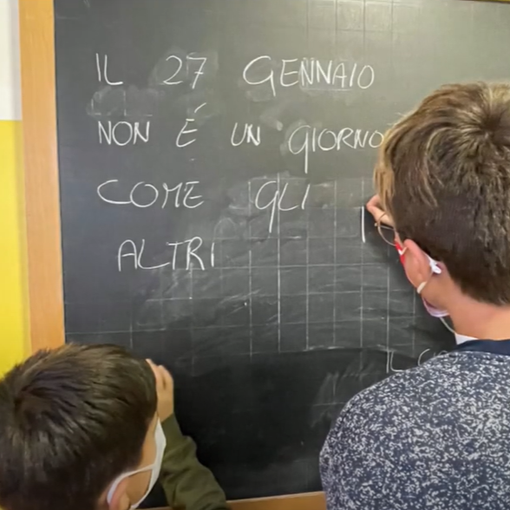 IL 27 GENNAIO
NON É UN GIORNO
COME GLI
ALTRI